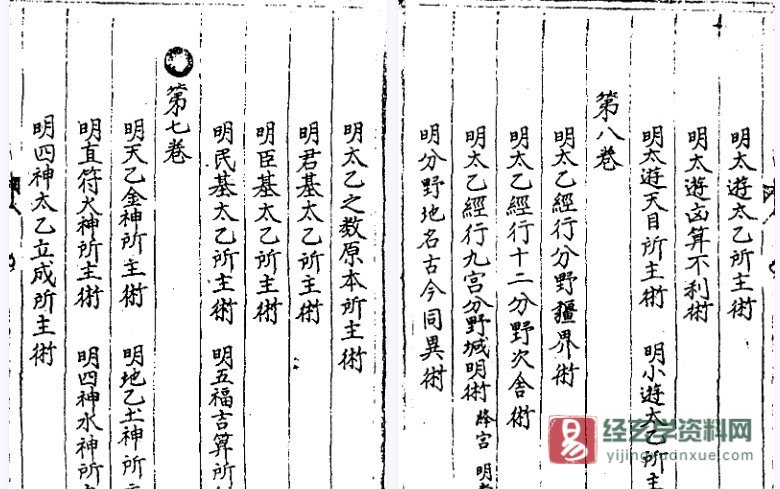 明太乙之教原本所主術
明君基太乙所主術
明臣基太乙所主術
明民基太乙所主術 明五福吉算所
第七卷
明天乙金神所主術 明地乙土神所
明直符火神所主術 明四神水神所
明四神太乙立成所主術
明太遊太乙所主術
明太遊凶算不利術
明太遊天目所主術 明小遊太乙所主
第八卷
明太乙經行分野疆界術
明太乙經行十二分野次舍術
明太乙經行九宮分野城明術 絳宮 明
明分野地名古今同異術
易
经艺学资料网